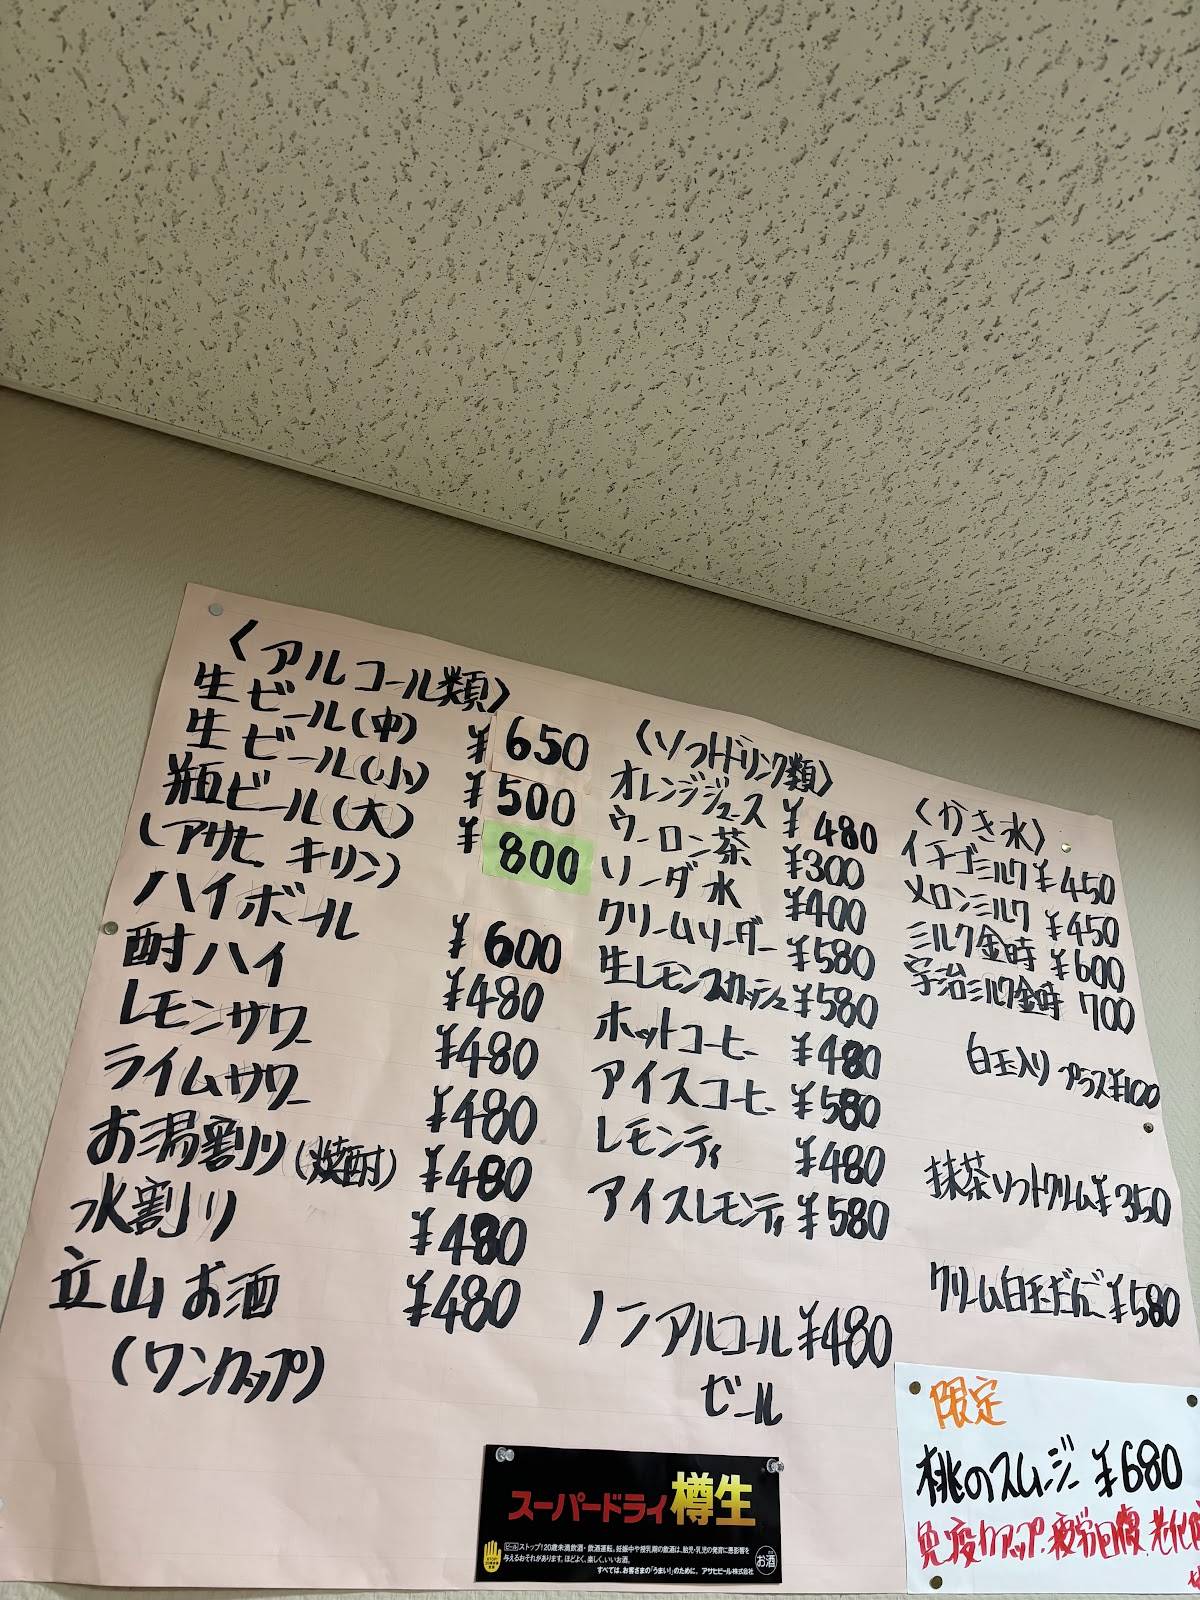 〈アルコール類〉
生ビール(中) ¥650
生ビール(小) ¥500
瓶ビール(大) ¥800
(アサヒ、キリン)
ハイボール ¥600
酎ハイ ¥480
レモンサワー ¥480
ライムサワー ¥480
お湯割り(焼酎) ¥480
水割り ¥480
立山お酒 ¥480
(ワンカップ)
〈ソフトドリンク類〉
オレンジジュース ¥480
ウーロン茶 ¥300
ソーダ水 ¥400
クリームソーダー ¥580
生レモンスカッシュ ¥580
ホットコーヒー ¥480
アイスコーヒー ¥580
レモンティ ¥480
アイスレモンティ ¥580
ノンアルコール ¥480
ビール
〈かき氷〉
イチゴミルク ¥450
メロンミルク ¥450
ミルク金時 ¥600
宇治ミルク金時 700
白玉入り プラス¥100
抹茶ソフトクリーム ¥350
クリーム白玉だんご ¥580
限定
桃のスムージー ¥680
免疫力アップ、疲労回復、老化
スーパードライ 樽生
ビール ストップ!20歳未満飲酒・飲酒運転。妊娠中や授乳期の飲酒は、胎児・乳児の発育に悪影響を
与えるおそれがあります。ほどよく、楽しく、いいお酒。
すべては、お客さまの「うまい!」のために。 アサヒビール株式会社
お酒